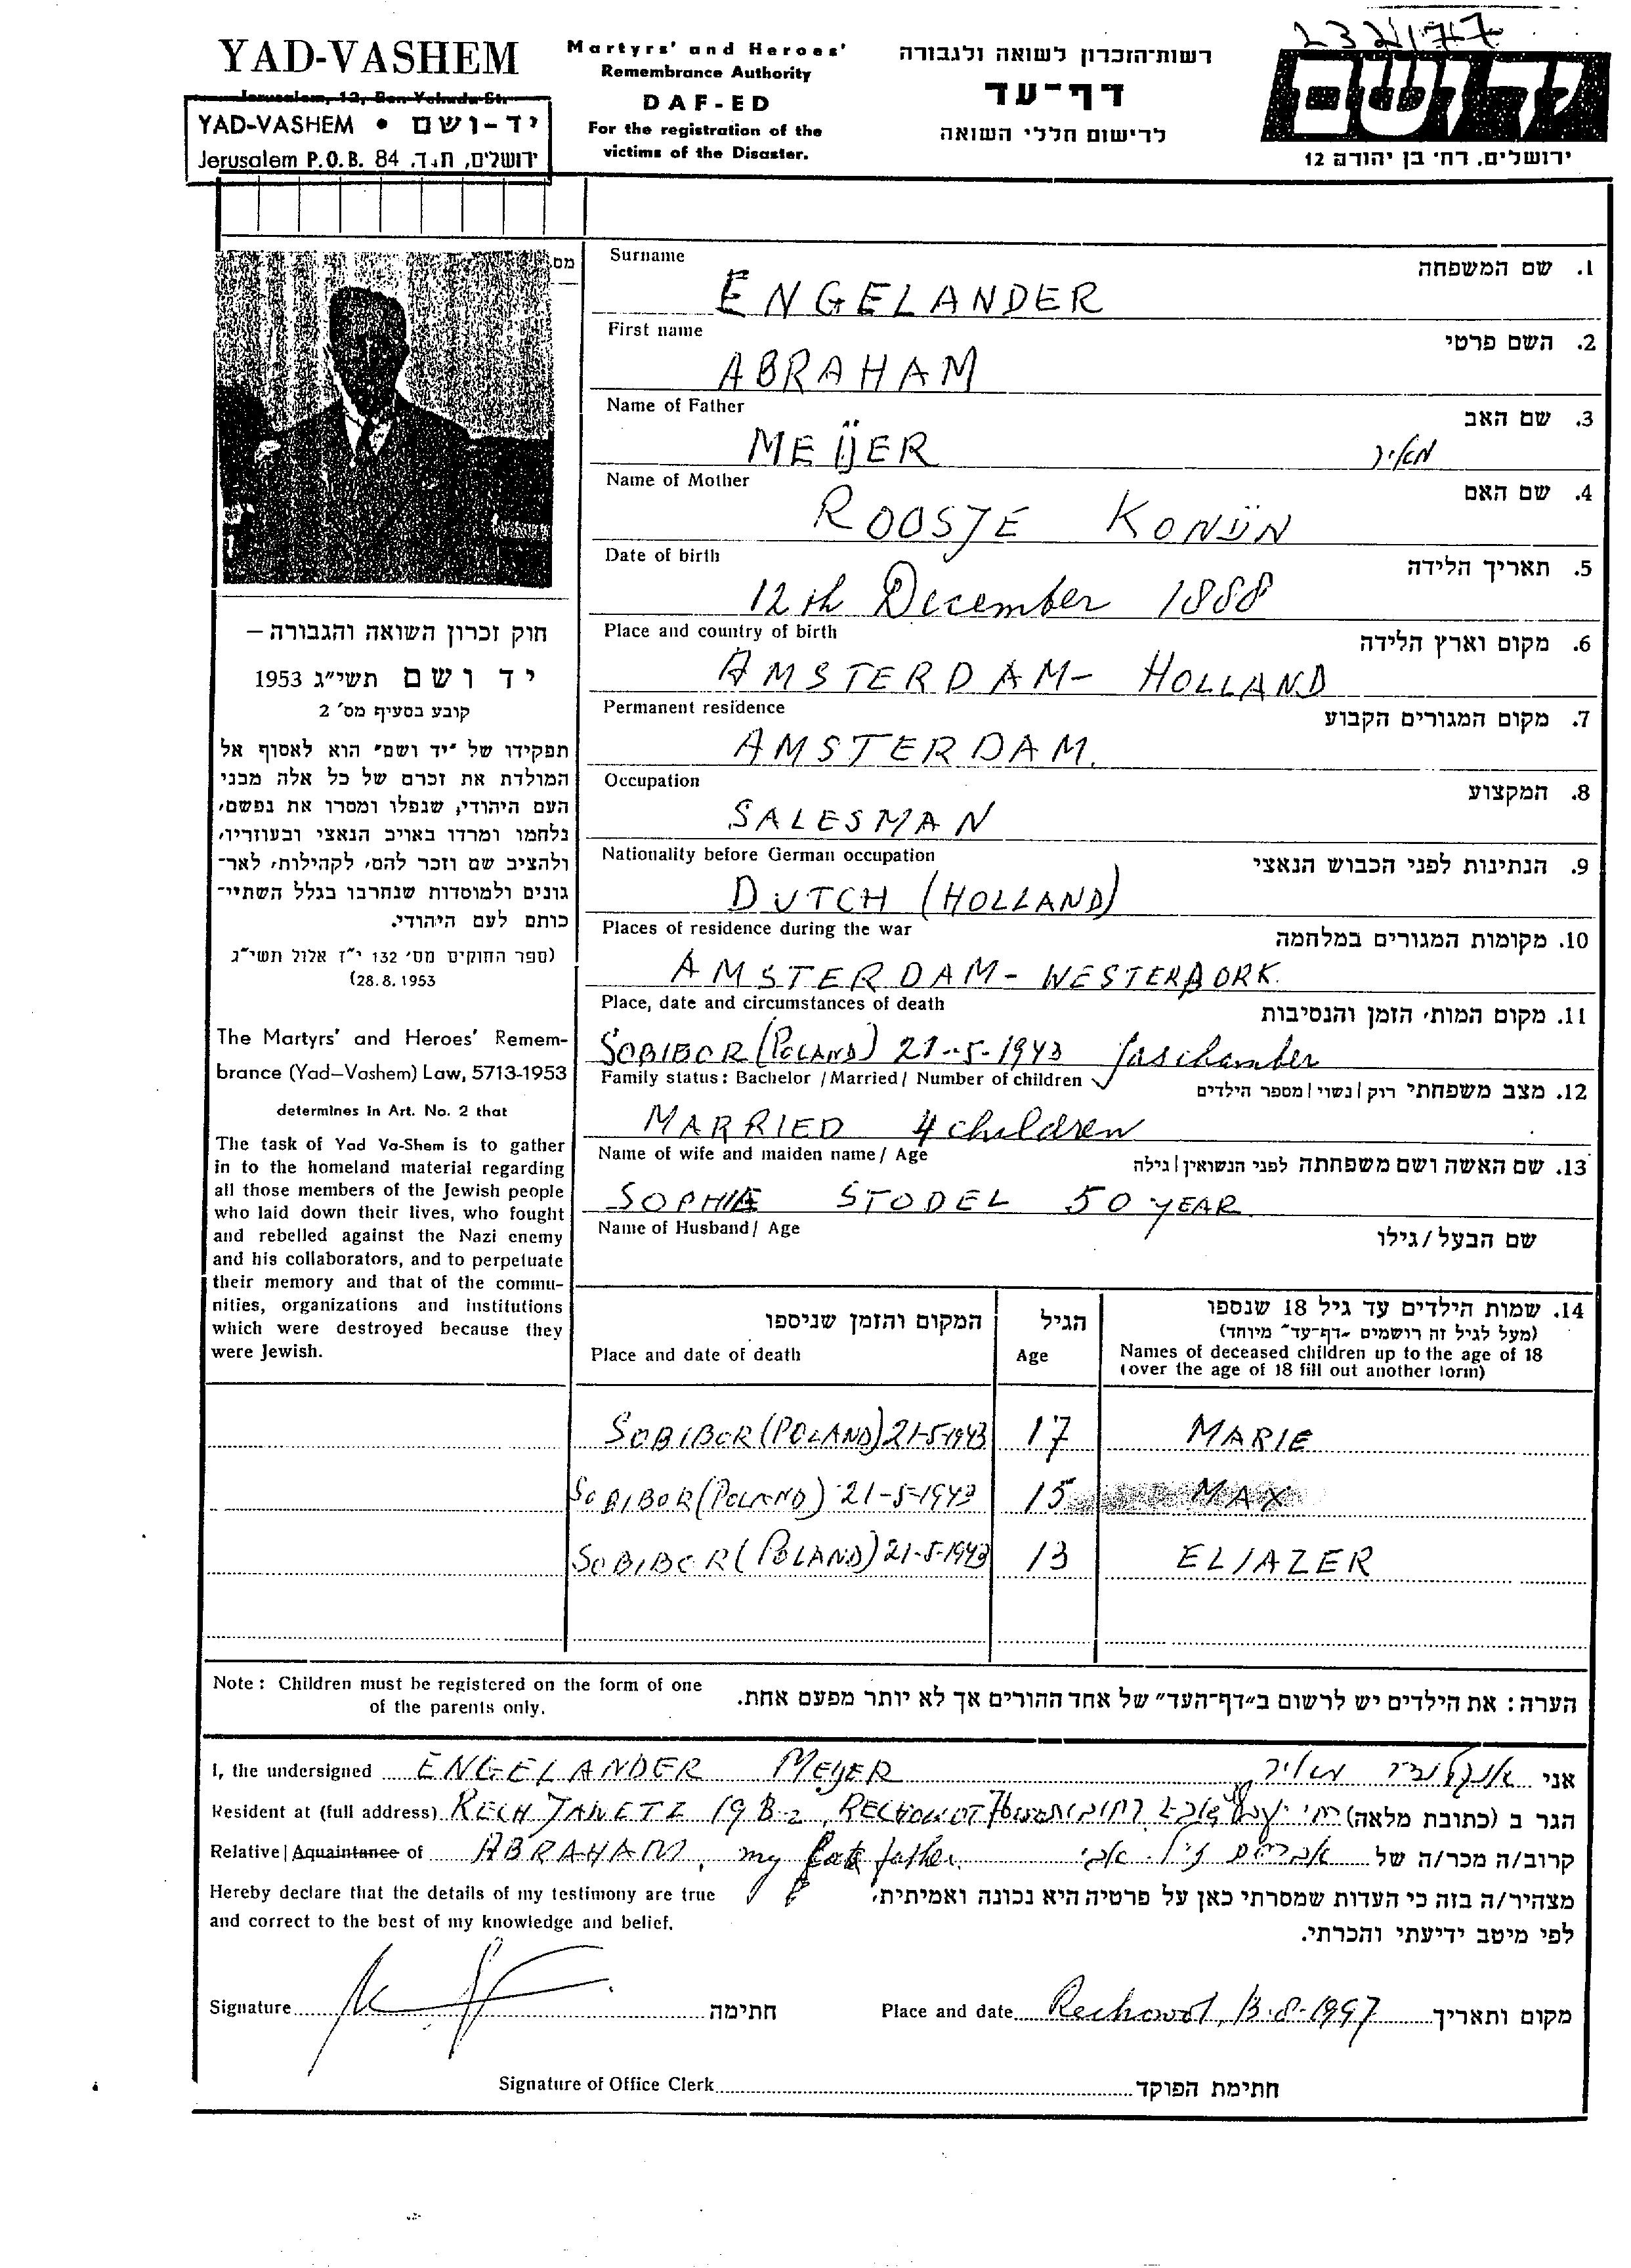 232177
YAD-VASHEM
Jerusalem, 12, Ben Yehuda Str.
YAD-VASHEM • יד-ושם
Jerusalem P.O.B. 84 .ירושלים, ת.ד
Martyrs' and Heroes'
Remembrance Authority
DAF-ED
For the registration of the
victims of the Disaster.
רשות־הזכרון לשואה ולגבורה
דף־עד
לרישום חללי השואה
ידושם
ירושלים, רח' בן יהודה 12
מס
Surname
1. שם המשפחה
ENGELANDER
First name
2. השם פרטי
ABRAHAM
Name of Father
3. שם האב
MEIJER
מאיר
Name of Mother
4. שם האם
ROOSJE KONIJN
Date of birth
5. תאריך הלידה
12th December 1888
Place and country of birth
6. מקום וארץ הלידה
AMSTERDAM- HOLLAND
Permanent residence
7. מקום המגורים הקבוע
AMSTERDAM.
Occupation
8. המקצוע
SALESMAN
Nationality before German occupation
9. הנתינות לפני הכבוש הנאצי
DUTCH (HOLLAND)
Places of residence during the war
10. מקומות המגורים במלחמה
AMSTERDAM- WESTERBORK.
Place, date and circumstances of death
11. מקום המות, הזמן והנסיבות
SOBIBOR (POLAND) 21-5-1943 gaschamber
Family status: Bachelor / Married / Number of children
12. מצב משפחתי רוק | נשוי | מספר הילדים
MARRIED 4 children
Name of wife and maiden name / Age
13. שם האשה ושם משפחתה לפני הנשואין | גילה
SOPHIE STODEL 50 YEAR
Name of Husband / Age
שם הבעל / גילו
חוק זכרון השואה והגבורה –
יד ושם תשי"ג 1953
קובע בסעיף מס' 2
תפקידו של "יד ושם" הוא לאסוף אל
המולדת את זכרם של כל אלה מבני
העם היהודי, שנפלו ומסרו את נפשם,
נלחמו ומרדו באויב הנאצי ובעוזריו,
ולהציב שם וזכר להם, לקהילות, לאר־
גונים ולמוסדות שנחרבו בגלל השתיי־
כותם לעם היהודי.
(ספר החוקים מס' 132 י"ז אלול תשי"ג
(28.8.1953
The Martyrs' and Heroes' Remem-
brance (Yad–Vashem) Law, 5713-1953
determines in Art. No. 2 that
The task of Yad Va-Shem is to gather
in to the homeland material regarding
all those members of the Jewish people
who laid down their lives, who fought
and rebelled against the Nazi enemy
and his collaborators, and to perpetuate
their memory and that of the commu-
nities, organizations and institutions
which were destroyed because they
were Jewish.
המקום והזמן שניספו
הגיל
14. שמות הילדים עד גיל 18 שנספו
(מעל לגיל זה רושמים "דף־עד" מיוחד)
Place and date of death
Age
Names of deceased children up to the age of 18
(over the age of 18 fill out another form)
SOBIBOR (POLAND) 21-5-1943 17 MARIE
SOBIBOR (POLAND) 21-5-1943 15 MAX
SOBIBOR (POLAND) 21-5-1943 13 ELIAZER
Note: Children must be registered on the form of one
of the parents only.
הערה: את הילדים יש לרשום ב"דף־העד" של אחד ההורים אך לא יותר מפעם אחת.
I, the undersigned ENGELANDER MEIJER
אני אנגלנדר מאיר
Resident at (full address) RECH JAWETZ 19 B-2, RECHOWOT
הגר ב (כתובת מלאה)
Relative | Aquaintance of ABRAHAM, my late father.
קרוב/ה מכר/ה של אברהם ז"ל. אבי
Hereby declare that the details of my testimony are true
and correct to the best of my knowledge and belief.
מצהיר/ה בזה כי העדות שמסרתי כאן על פרטיה היא נכונה ואמיתית,
לפי מיטב ידיעתי והכרתי.
Signature
חתימה
Place and date Rechowot, 13-8-1997 מקום ותאריך
Signature of Office Clerk
חתימת הפוקד